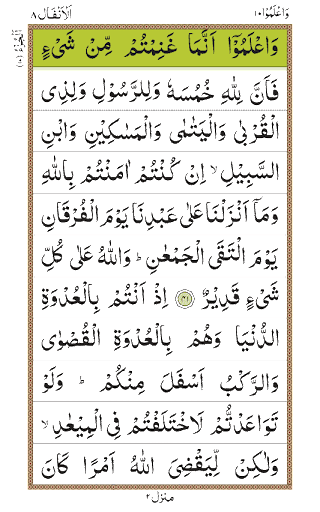 وَاعْلَمُوْۤا ۱۰
اَلْاَنْفَال ۸
اَلْجُزْءُ (۱۰)
وَاعْلَمُوْۤا اَنَّمَا غَنِمْتُمْ مِّنْ شَیْءٍ
فَاَنَّ لِلّٰهِ خُمُسَهٗ وَلِلرَّسُوْلِ وَلِذِی
الْقُرْبٰی وَالْیَتٰمٰی وَالْمَسٰكِیْنِ وَابْنِ
السَّبِیْلِ ۙ اِنْ كُنْتُمْ اٰمَنْتُمْ بِاللّٰهِ
وَمَاۤ اَنْزَلْنَا عَلٰی عَبْدِنَا یَوْمَ الْفُرْقَانِ
یَوْمَ الْتَقَی الْجَمْعٰنِ ؕ وَاللّٰهُ عَلٰی كُلِّ
شَیْءٍ قَدِیْرٌ ﴿۴۱﴾ اِذْ اَنْتُمْ بِالْعُدْوَةِ
الدُّنْیَا وَهُمْ بِالْعُدْوَةِ الْقُصْوٰی
وَالرَّكْبُ اَسْفَلَ مِنْكُمْ ؕ وَلَوْ
تَوَاعَدْتُّمْ لَاخْتَلَفْتُمْ فِی الْمِیْعٰدِ ۙ
وَلٰكِنْ لِّیَقْضِیَ اللّٰهُ اَمْرًا كَانَ
منزل ۲